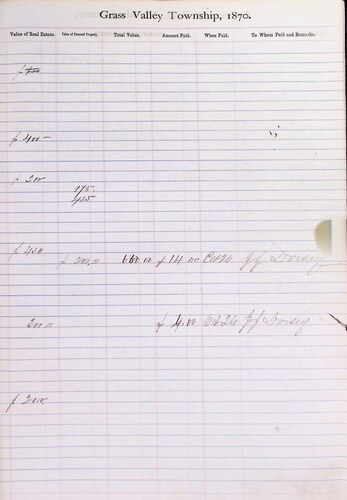 Grass Valley Township, 1870.
Value of Real Estate. Value of Personal Property. Total Value. Amount Paid. When Paid. To Whom Paid and Remarks.
$ 400 —
$ 200
175.
$ 450
$ 200.00 660 00 $ 14 00 Oct 26 J J Dorsey
200 00 $ 4.00 Oct 26 J J Dorsey